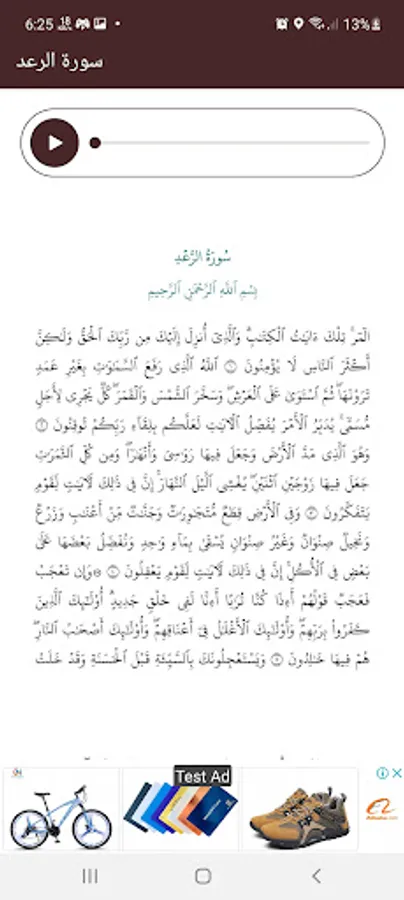 6:25
13%
سورة الرعد
سُورَةُ الرَّعْدِ
بِسْمِ ٱللَّهِ ٱلرَّحْمَٰنِ ٱلرَّحِيمِ
الٓمٓرۚ تِلْكَ ءَايَٰتُ ٱلْكِتَٰبِۗ وَٱلَّذِىٓ أُنزِلَ إِلَيْكَ مِن رَّبِّكَ ٱلْحَقُّ وَلَٰكِنَّ
أَكْثَرَ ٱلنَّاسِ لَا يُؤْمِنُونَ ١ ٱللَّهُ ٱلَّذِى رَفَعَ ٱلسَّمَٰوَٰتِ بِغَيْرِ عَمَدٍ
تَرَوْنَهَاۖ ثُمَّ ٱسْتَوَىٰ عَلَى ٱلْعَرْشِۖ وَسَخَّرَ ٱلشَّمْسَ وَٱلْقَمَرَۖ كُلٌّ يَجْرِى لِأَجَلٍ
مُّسَمًّىۚ يُدَبِّرُ ٱلْأَمْرَ يُفَصِّلُ ٱلْءَايَٰتِ لَعَلَّكُم بِلِقَآءِ رَبِّكُمْ تُوقِنُونَ ٢
وَهُوَ ٱلَّذِى مَدَّ ٱلْأَرْضَ وَجَعَلَ فِيهَا رَوَٰسِىَ وَأَنْهَٰرًاۖ وَمِن كُلِّ ٱلثَّمَرَٰتِ
جَعَلَ فِيهَا زَوْجَيْنِ ٱثْنَيْنِۖ يُغْشِى ٱلَّيْلَ ٱلنَّهَارَۚ إِنَّ فِى ذَٰلِكَ لَءَايَٰتٍ لِّقَوْمٍ
يَتَفَكَّرُونَ ٣ وَفِى ٱلْأَرْضِ قِطَعٌ مُّتَجَٰوِرَٰتٌ وَجَنَّٰتٌ مِّنْ أَعْنَٰبٍ وَزَرْعٌ
وَنَخِيلٌ صِنْوَانٌ وَغَيْرُ صِنْوَانٍ يُسْقَىٰ بِمَآءٍ وَٰحِدٍ وَنُفَضِّلُ بَعْضَهَا عَلَىٰ
بَعْضٍ فِى ٱلْأُكُلِۚ إِنَّ فِى ذَٰلِكَ لَءَايَٰتٍ لِّقَوْمٍ يَعْقِلُونَ ٤ ۞ وَإِن تَعْجَبْ
فَعَجَبٌ قَوْلُهُمْ أَءِذَا كُنَّا تُرَٰبًا أَءِنَّا لَفِى خَلْقٍ جَدِيدٍۗ أُو۟لَٰٓئِكَ ٱلَّذِينَ
كَفَرُوا۟ بِرَبِّهِمْۖ وَأُو۟لَٰٓئِكَ ٱلْأَغْلَٰلُ فِىٓ أَعْنَاقِهِمْۖ وَأُو۟لَٰٓئِكَ أَصْحَٰبُ ٱلنَّارِۖ
هُمْ فِيهَا خَٰلِدُونَ ٥ وَيَسْتَعْجِلُونَكَ بِٱلسَّيِّئَةِ قَبْلَ ٱلْحَسَنَةِ وَقَدْ خَلَتْ
Test Ad
Alibaba.com